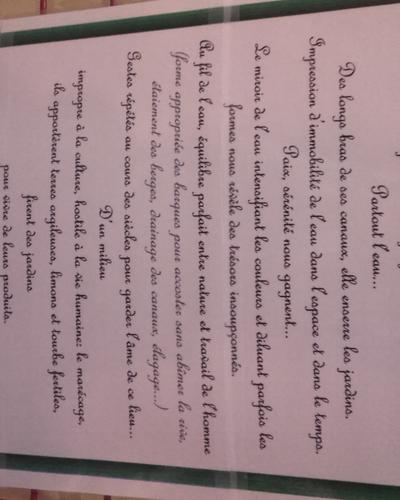 Partout l'eau...
Des longs bras de ses canaux, elle enserre les jardins.
Impression d'immobilité de l'eau dans l'espace et dans le temps.
Paix, sérénité nous gagnent...
Le miroir de l'eau intensifiant les couleurs et diluant parfois les
formes nous révèle des trésors insoupçonnés.
Au fil de l'eau, équilibre parfait entre nature et travail de l'homme
(forme appropriée des barques pour accoster sans abîmer la rive,
étaiement des berges, drainage des canaux, élagage...)
Gestes répétés au cours des siècles pour garder l'âme de ce lieu...
D'un milieu
impropre à la culture, hostile à la vie humaine: le marécage,
ils apportèrent terres argileuses, limons et tourbe fertiles,
firent des jardins
pour vivre de leurs produits.